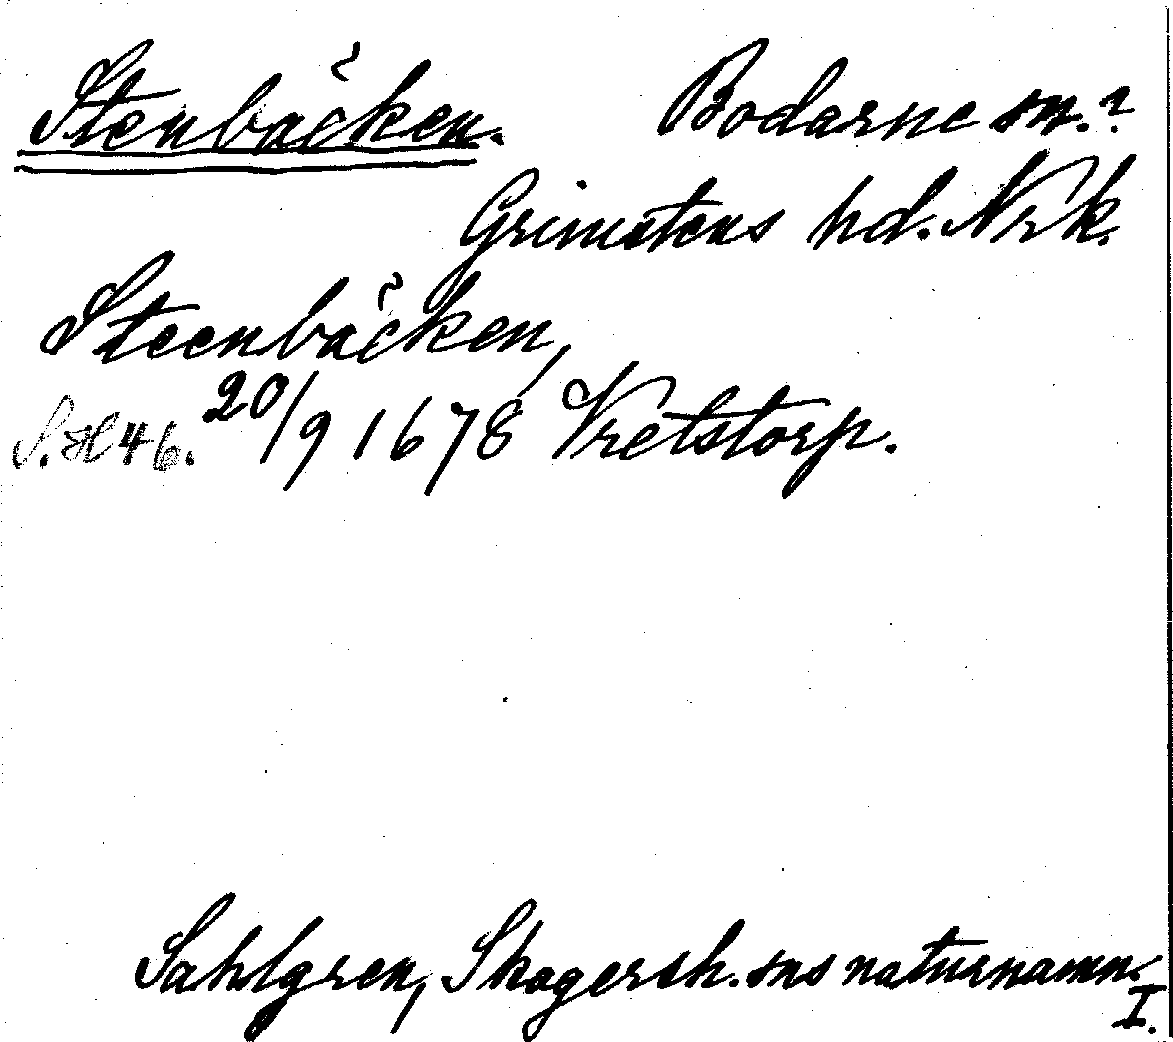 Stenbäcken. Bodarne sn.?
Grimstens hd. Nrk.
Steenbäcken,
S. H 46. 20/9 1678 Vretstorp.
Sahlgren, Skagersh. sns naturnamn.
I.